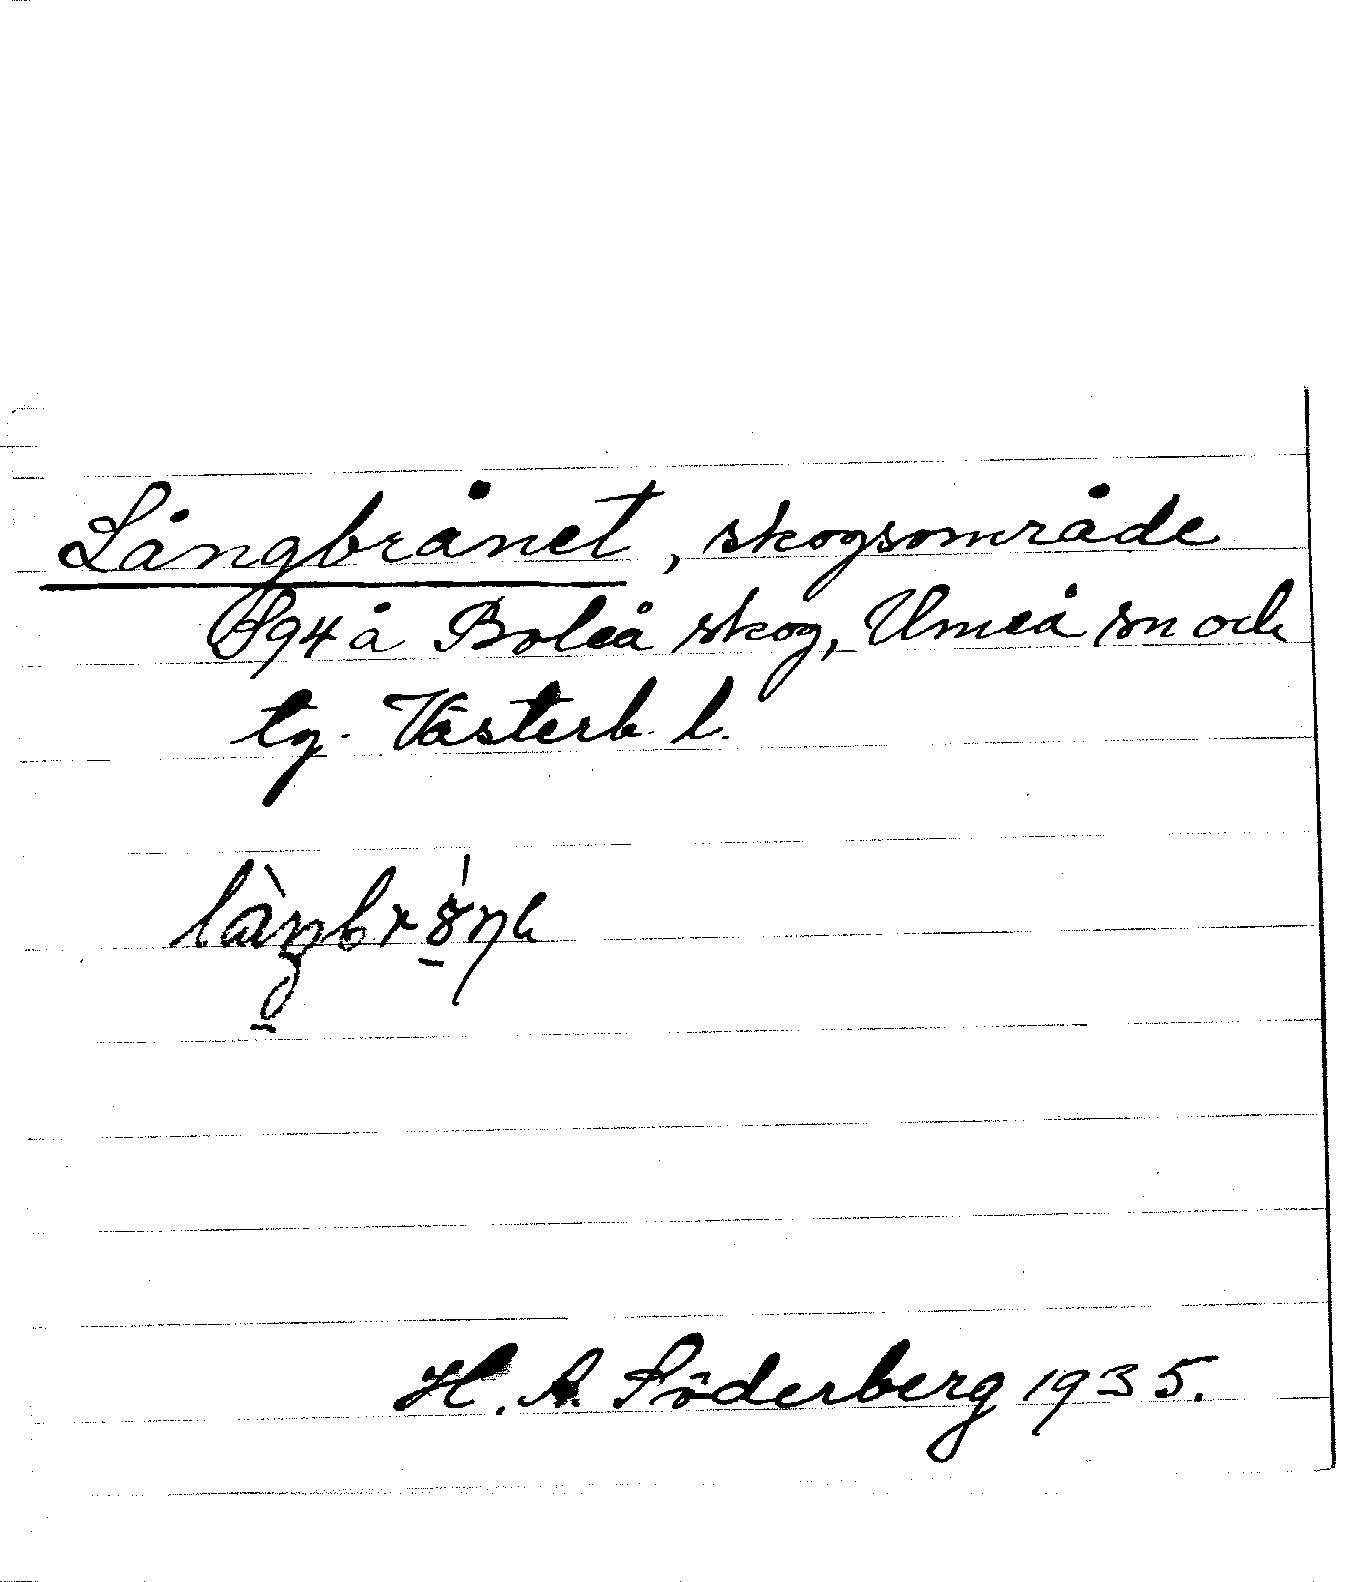 Långbrånet, skogsområde
894 å Boleå skog, Umeå sn och
tg. Västerb. l.
H. A. Söderberg 1935.